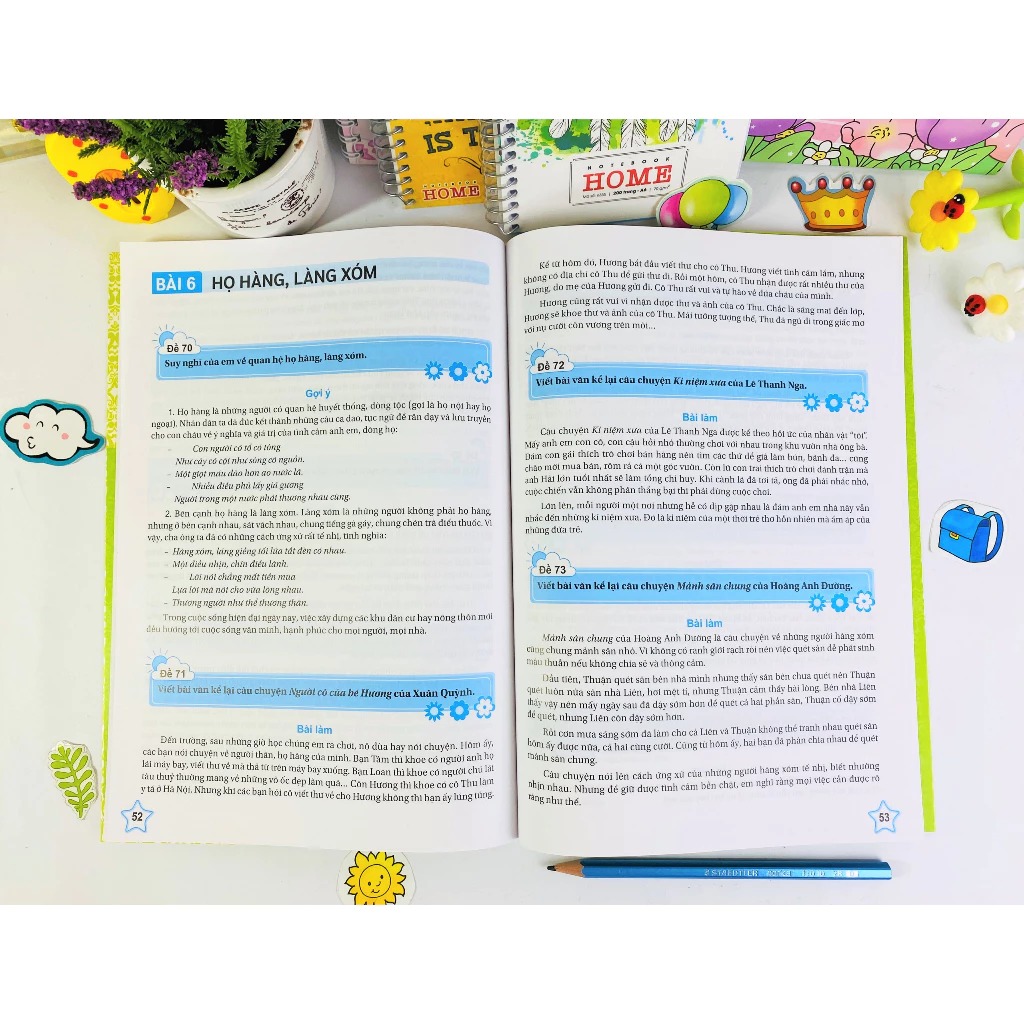 IS T
NOTEBOOK
HOME
NOTEBOOK
HOME
200 trang - A4
BÀI 6 HỌ HÀNG, LÀNG XÓM
Đề 70
Suy nghĩ của em về quan hệ họ hàng, làng xóm.
Gợi ý
1. Họ hàng là những người có quan hệ huyết thống, dòng tộc (gọi là họ nội hay họ
ngoại). Nhân dân ta đã đúc kết thành những câu ca dao, tục ngữ để răn dạy và lưu truyền
cho con cháu về ý nghĩa và giá trị của tình cảm anh em, dòng họ:
– Con người có tổ có tông
Như cây có cội như sông có nguồn.
– Một giọt máu đào hơn ao nước lã.
– Nhiễu điều phủ lấy giá gương
Người trong một nước phải thương nhau cùng.
2. Bên cạnh họ hàng là làng xóm. Làng xóm là những người không phải họ hàng,
nhưng ở bên cạnh nhau, sát vách nhau, chung tiếng gà gáy, chung chén trà điếu thuốc. Vì
vậy, cha ông ta đã có những cách ứng xử rất tế nhị, tình nghĩa:
– Hàng xóm, láng giềng tối lửa tắt đèn có nhau.
– Một điều nhịn, chín điều lành.
– Lời nói chẳng mất tiền mua
Lựa lời mà nói cho vừa lòng nhau.
– Thương người như thể thương thân.
Trong cuộc sống hiện đại ngày nay, việc xây dựng các khu dân cư hay nông thôn mới
đều hướng tới cuộc sống văn minh, hạnh phúc cho mọi người, mọi nhà.
Đề 71
Viết bài văn kể lại câu chuyện Người cô của bé Hương của Xuân Quỳnh.
Bài làm
Đến trường, sau những giờ học chúng em ra chơi, nô đùa hay nói chuyện. Hôm ấy,
các bạn nói chuyện về người thân, họ hàng của mình. Bạn Tâm thì khoe có người anh họ
lái máy bay, viết thư về mà thả từ trên máy bay xuống. Bạn Loan thì khoe có người chú lái
tàu thuỷ thường mang về những vỏ ốc đẹp làm quà... Còn Hương thì khoe có cô Thu làm
y tá ở Hà Nội. Nhưng khi các bạn hỏi cô viết thư về cho Hương không thì bạn ấy lúng túng.
52
Kể từ hôm đó, Hương bắt đầu viết thư cho cô Thu. Hương viết tình cảm lắm, nhưng
không có địa chỉ cô Thu để gửi thư đi. Rồi một hôm, cô Thu nhận được rất nhiều thư của
Hương, do mẹ của Hương gửi đi. Cô Thu rất vui và tự hào về đứa cháu của mình.
Hương cũng rất vui vì nhận được thư và ảnh của cô Thu. Chắc là sáng mai đến lớp,
Hương sẽ khoe thư và ảnh của cô Thu. Mải tưởng tượng thế, Thu đã ngủ đi trong giấc mơ
với nụ cười còn vương trên môi...
Đề 72
Viết bài văn kể lại câu chuyện Kỉ niệm xưa của Lê Thanh Nga.
Bài làm
Câu chuyện Kỉ niệm xưa của Lê Thanh Nga được kể theo hồi ức của nhân vật "tôi".
Mấy anh em con cô, con cậu hồi nhỏ thường chơi với nhau trong khu vườn nhà ông bà.
Đám con gái thích trò chơi bán hàng nên tìm các thứ để giả làm bún, bánh đa... cùng
chào mời mua bán, rôm rả cả một góc vườn. Còn lũ con trai thích trò chơi đánh trận mà
anh Hải lớn tuổi nhất sẽ làm tổng chỉ huy. Khi cành lá đã tơi tả, ông đã phải nhắc nhở,
cuộc chiến vẫn không phân thắng bại thì phải dừng cuộc chơi.
Lớn lên, mỗi người một nơi nhưng hễ có dịp gặp nhau là đám anh em nhà này vẫn
nhắc đến những kỉ niệm xưa. Đó là kỉ niệm của một thời trẻ thơ hồn nhiên mà ấm áp của
những đứa trẻ.
Đề 73
Viết bài văn kể lại câu chuyện Mảnh sân chung của Hoàng Anh Đường.
Bài làm
Mảnh sân chung của Hoàng Anh Đường là câu chuyện về những người hàng xóm
cùng chung mảnh sân nhỏ. Vì không có ranh giới rạch ròi nên việc quét sân dễ phát sinh
mâu thuẫn nếu không chia sẻ và thông cảm.
Đầu tiên, Thuận quét sân bên nhà mình nhưng thấy sân bên chưa quét nên Thuận
quét luôn nửa sân nhà Liên, hơi mệt tí, nhưng Thuận cảm thấy hài lòng. Bên nhà Liên
thấy vậy nên mấy ngày sau đã dậy sớm hơn để quét cả hai phần sân, Thuận cố dậy sớm
để quét, nhưng Liên còn dậy sớm hơn.
Rồi cơn mưa sáng sớm đã làm cho cả Liên và Thuận không thể tranh nhau quét sân
hôm ấy được nữa, cả hai cùng cười. Cũng từ hôm ấy, hai bạn đã phân chia nhau để quét
mảnh sân chung.
Câu chuyện nói lên cách ứng xử của những người hàng xóm tế nhị, biết nhường
nhịn nhau. Nhưng để giữ được tình cảm bền chặt, em nghĩ rằng mọi việc cần được rõ
ràng như thế.
53
STAEDTLER